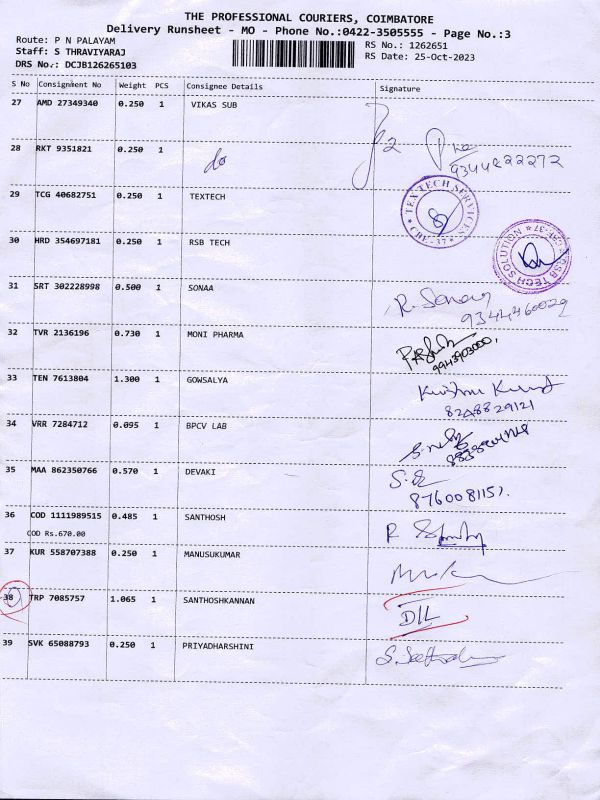 THE PROFESSIONAL COURIERS, COIMBATORE
Delivery Runsheet - MO - Phone No.:0422-3505555 - Page No.:3
Route: P N PALAYAM
Staff: S THRAVIYARAJ
DRS No.: DCJB126265103
RS No.: 1262651
RS Date: 25-Oct-2023
S No Consignment No Weight PCS Consignee Details Signature
27 AMD 27349340 0.250 1 VIKAS SUB
28 RKT 9351821 0.250 1 do
29 TCG 40682751 0.250 1 TEXTECH
TEX TECH SERVICES
CBE - 37
30 HRD 354697181 0.250 1 RSB TECH
RSB TECH SOLUTION
31 SRT 302228998 0.500 1 SONAA
9344460029
32 TVR 2136196 0.730 1 MONI PHARMA
33 TEN 7613804 1.300 1 GOWSALYA
34 VRR 7284712 0.095 1 BPCV LAB
35 MAA 862350766 0.570 1 DEVAKI
8760081151
36 COD 1111989515 0.485 1 SANTHOSH
COD Rs.670.00
37 KUR 558707388 0.250 1 MANUSUKUMAR
38 TRP 7085757 1.065 1 SANTHOSHKANNAN D/L
39 SVK 65088793 0.250 1 PRIYADHARSHINI